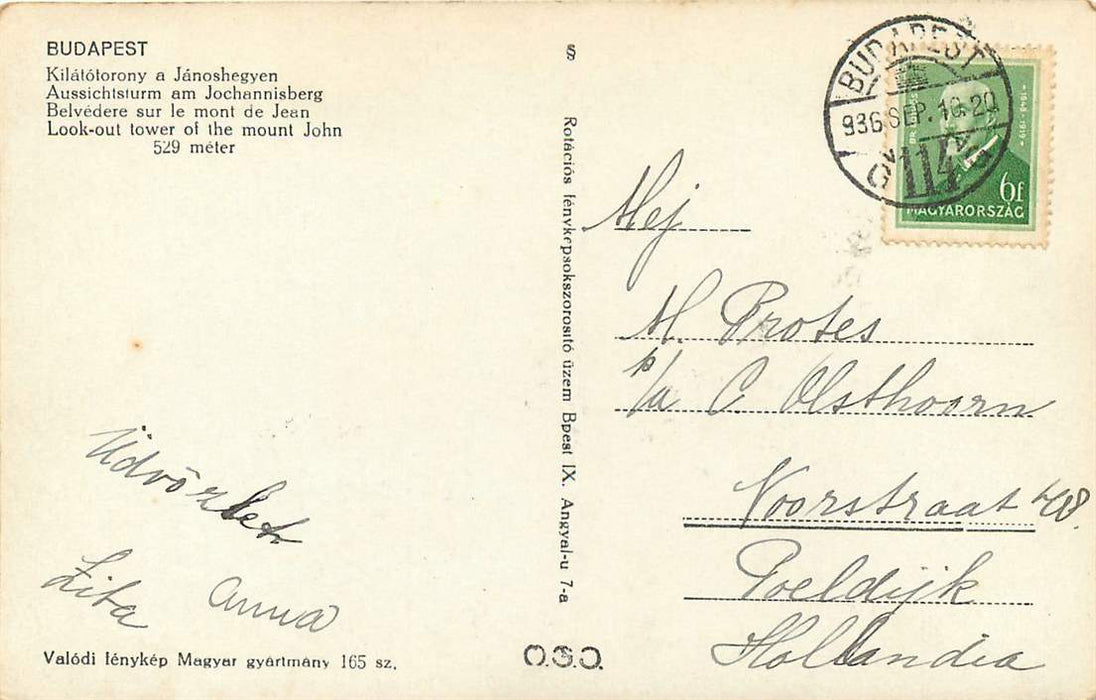 BUDAPEST
Kilátótorony a Jánoshegyen
Aussichtsturm am Jochannisberg
Belvédere sur le mont de Jean
Look-out tower of the mount John
529 méter
Üdvözlet
Zita Anna
Valódi fénykép Magyar gyártmány 165 sz.
§
Rotációs fényképsokszorosító üzem Bpest IX. Angyal-u 7-a
O.S.O.
BUDAPEST
936 SEP. 10. 20
114
1848-1919
6f
MAGYARORSZÁG
Mej
M. Protes
p/a C Olsthoorn
Voorstraat
Poeldijk
Hollandia